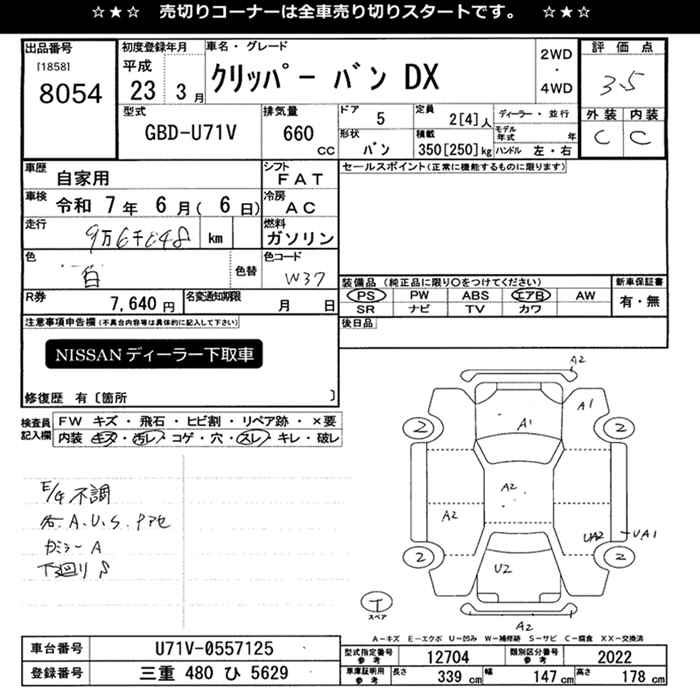 ☆★☆ 売切りコーナーは全車売り切りスタートです。 ☆★☆
出品番号
[1858]
8054
初度登録年月
平成
23 3月
車名・グレード
クリッパー バン DX
2WD
・
4WD
評価点
3.5
外装 内装
C C
型式
GBD-U71V
排気量
660 cc
ドア
5
定員
2[4]人
ディーラー・並行
モデル年式 年
形状
バン
積載
350[250]kg
ハンドル 左・右
車歴
自家用
シフト
FAT
セールスポイント(正常に機能するものに限ります)
車検
令和 7年 6月( 6日)
冷房
AC
走行
9万6千048 km
燃料
ガソリン
色
白
色替
色コード
W37
R券
7,640円
名変通知期限
月 日
装備品 (純正品に限り○をつけてください)
PS PW ABS エアB AW
SR ナビ TV カワ
新車保証書
有・無
後日品
注意事項申告欄(不具合内容等は具体的に記入して下さい)
NISSANディーラー下取車
修復歴 有〔箇所 〕
検査員記入欄
FW キズ・飛石・ヒビ割・リペア跡・×要
内装 キズ・汚レ・コゲ・穴・スレ・キレ・破レ
E/G不調
各A.U.S.Pアセ
カミラーA
下廻りS
A2
A1
A1
2
2
A2
A2
UA2
UA1
2
2
U2
T
スペア
A2
A-キズ E-エクボ U-凹み W-補修跡 S-サビ C-腐食 XX-交換済
車台番号
U71V-0557125
登録番号
三重 480 ひ 5629
型式指定番号 参考
12704
類別区分番号 参考
2022
車庫証明用 参考
長さ 339 cm
幅 147 cm
高さ 178 cm